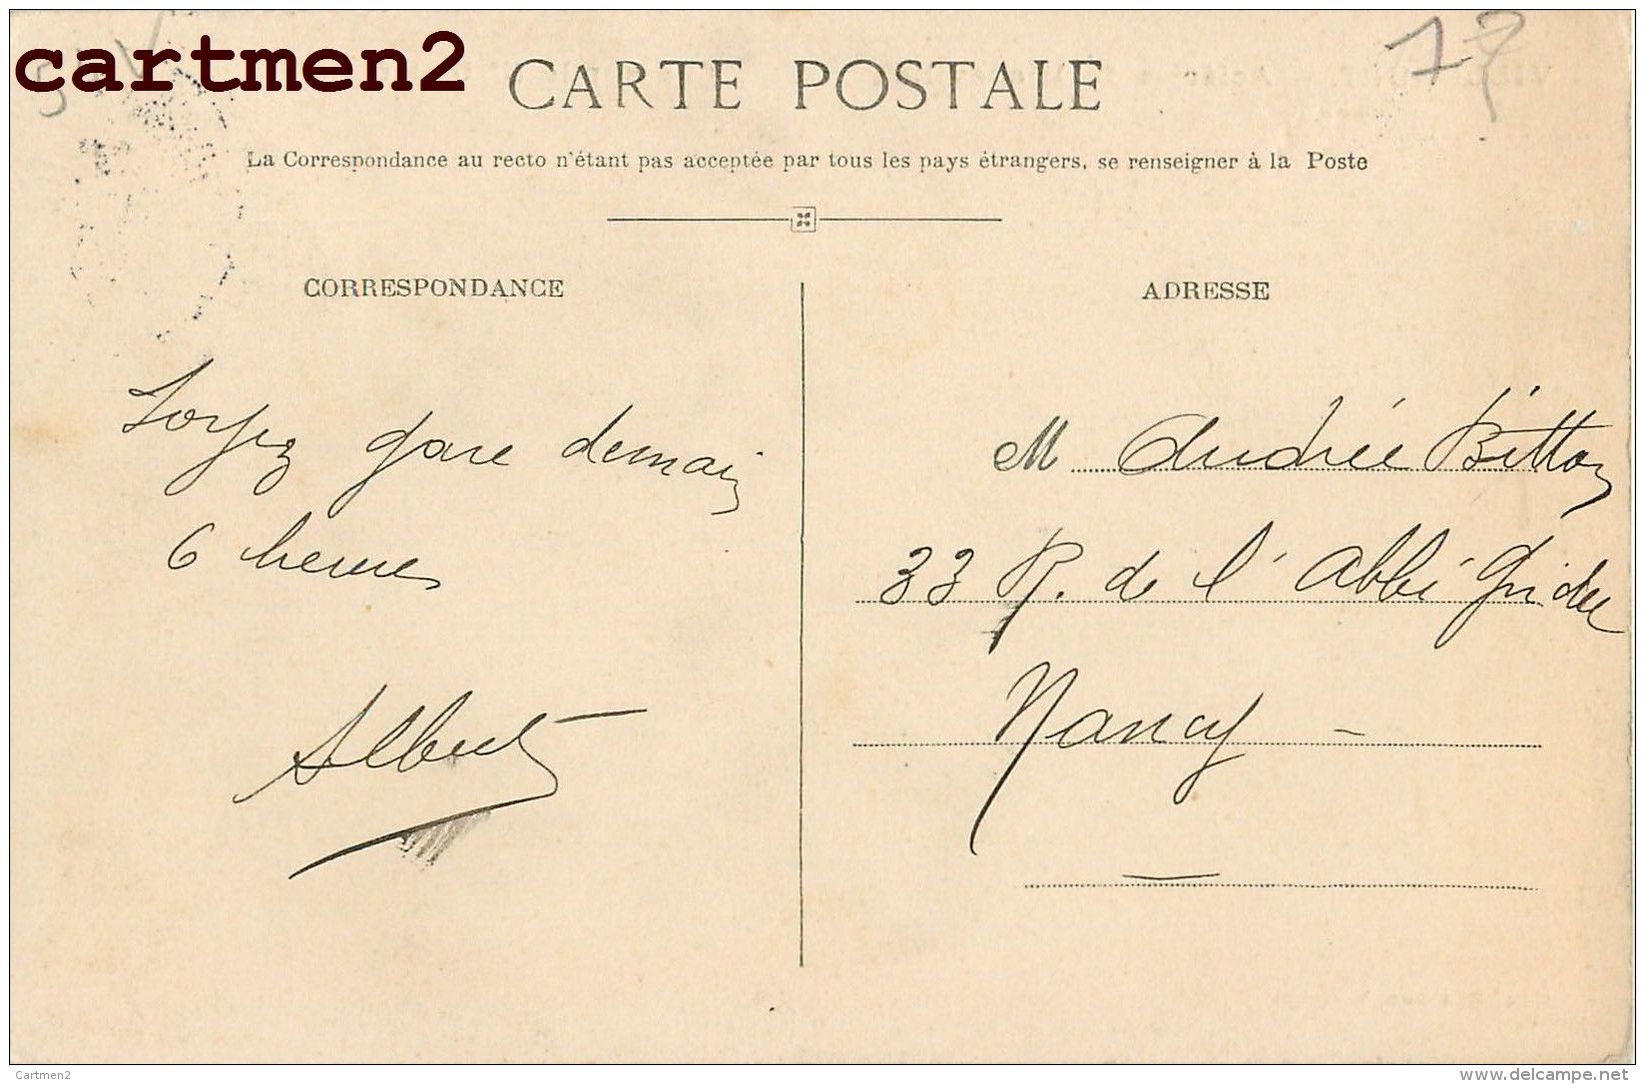 cartmen2
17
CARTE POSTALE
La Correspondance au recto n'étant pas acceptée par tous les pays étrangers, se renseigner à la Poste
CORRESPONDANCE
Soyez gare demain
6 heures
Albert
ADRESSE
M Andrée Bitton
33 R. de l'Abbé Gridel
Nancy
Cartmen2
delcampe.net